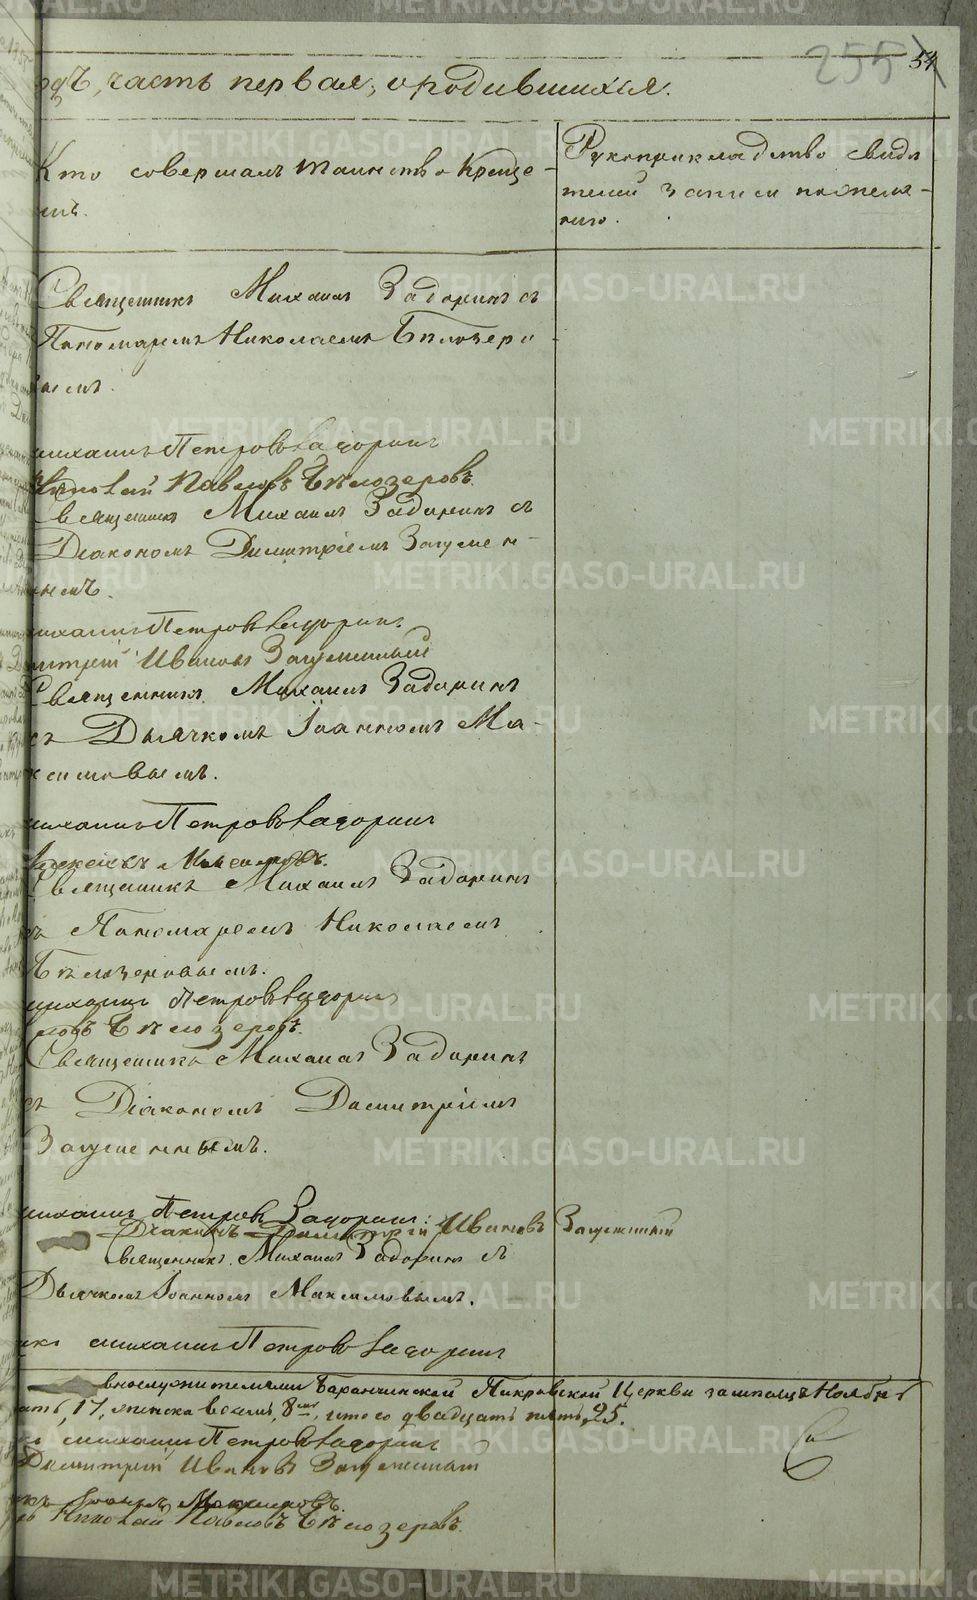 255 54
одъ, часть первая, о родившихся.
Кто совершалъ таинство Креще-
нія.
Рукоприкладство свидѣ
телей записи по жела-
нію.
Священникъ Михаилъ Задоринъ съ
Пономаремъ Николаемъ Бѣлозеро
вымъ.
Михаилъ Петровъ Задоринъ
Николай Павловъ Бѣлозеровъ.
Священникъ Михаилъ Задоринъ съ
Діакономъ Димитріемъ Загумен-
нымъ.
Михаилъ Петровъ Задоринъ
митрій Ивановъ Загуменный
Священникъ Михаилъ Задоринъ
съ Дьячкомъ Іоанномъ Ма-
ксимовымъ.
Михаилъ Петровъ Задоринъ
Священникъ Михаилъ Задоринъ
съ Пономаремъ Николаемъ
Бѣлозеровымъ.
Михаилъ Петровъ Задоринъ
ловъ Бѣлозеровъ.
Священникъ Михаилъ Задоринъ
съ Діакономъ Димитріемъ
Загуменнымъ.
Михаилъ Петровъ Задоринъ:
Діаконъ Димитрій Ивановъ Загуменный
Священникъ Михаилъ Задоринъ съ
Дьячкомъ Іоанномъ Максимовымъ.
Михаилъ Петровъ Задоринъ
Баранчинской Покровской Церкви за мѣсяцъ Ноябрь
17, женска восемь, 8мъ, итого двадцать пять, 25.
Михаилъ Петровъ Задоринъ
Димитрій Ивановъ Загуменный
Іоаннъ Максимовъ.
Николай Павловъ Бѣлозеровъ.
METRIKI.GASO-URAL.RU